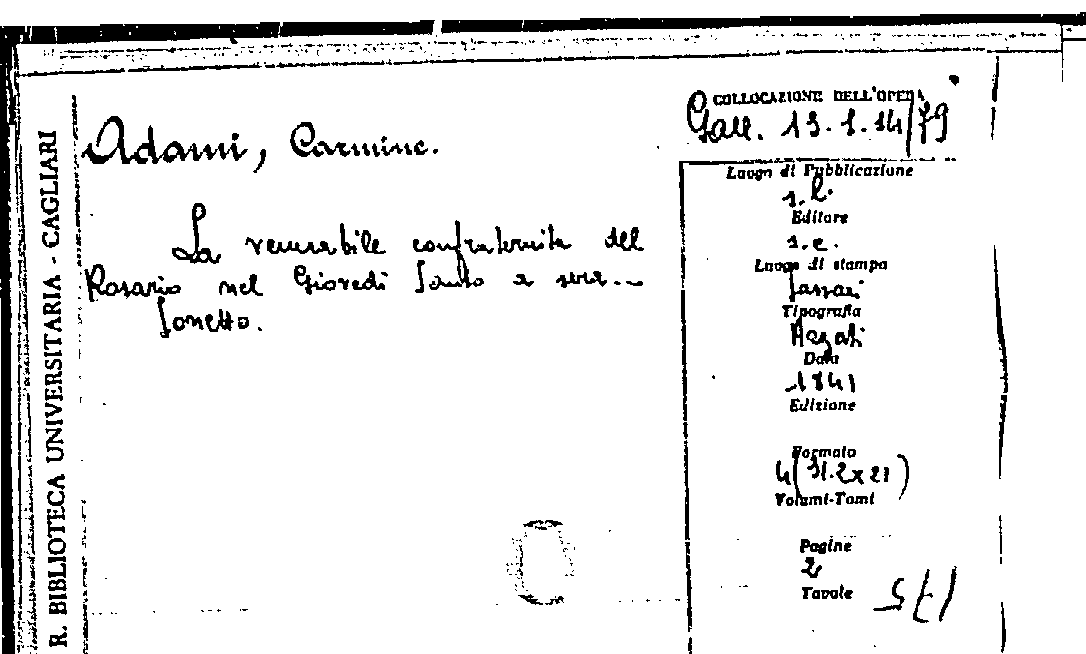 R. BIBLIOTECA UNIVERSITARIA - CAGLIARI
Adami, Carmine.
La venerabile confraternita del
Rosario nel Giovedì Santo a sera...
Sonetto.
COLLOCAZIONE DELL'OPERA
Gall. 13.1.14/79
Luogo di Pubblicazione
s.l.
Editore
s.e.
Luogo di stampa
Sassari
Tipografia
Azati
Data
1841
Edizione
Formato
4(31.2x21)
Volumi-Tomi
Pagine
2
Tavole